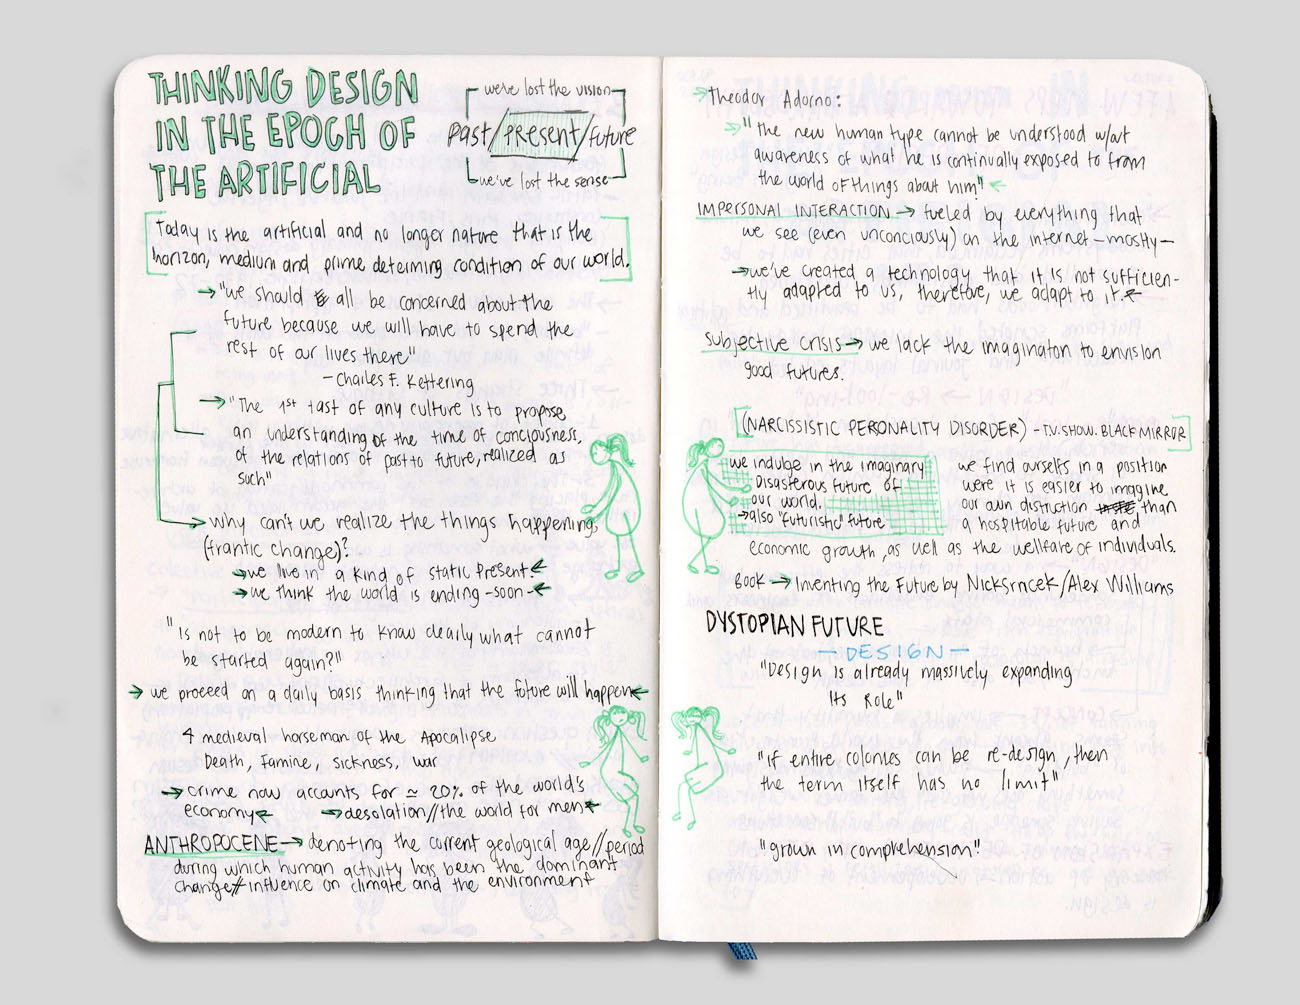 THINKING DESIGN
IN THE EPOCH OF
THE ARTIFICIAL
we've lost the vision
past/present/future
we've lost the sense
Today is the artificial and no longer nature that is the
horizon, medium and prime determing condition of our world.
→"we should all be concerned about the
future because we will have to spend the
rest of our lives there"
-Charles F. Kettering
→"The 1st tast of any culture is to propose
an understanding of the time of conciousness,
of the relations of past to future, realized as
such"
→why can't we realize the things happening,
(frantic change)?
→we live in a kind of static present.←
→we think the world is ending -soon-←
"Is not to be modern to know clearly what cannot
be started again?"
→we proceed on a daily basis thinking that the future will happen←
4 medieval horseman of the Apocalipse
Death, Famine, Sickness, War
→crime now accounts for ≃ 20% of the world's
economy← →desolation//the world for men←
ANTHROPOCENE→denoting the current geological age//period
during which human activity has been the dominant
change// influence on climate and the environment
→Theodor Adorno:
→"the new human type cannot be understood w/out
awareness of what he is continually exposed to from
the world of things about him"←
IMPERSONAL INTERACTION→ fueled by everything that
we see (even unconciously) on the internet -mostly-
→we've created a technology that it is not sufficien-
tly adapted to us, therefore, we adapt to it.←
subjective crisis→we lack the imaginaton to envision
good futures.
(NARCISSISTIC PERSONALITY DISORDER) - TV.SHOW. BLACK MIRROR
we indulge in the imaginary
Disasterous future of
our world.
→also "futuristic" future
we find ourselfs in a position
were it is easier to imagine
our own distruction than
a hospitable future and
economic growth, as well as the wellfare of individuals.
Book → Inventing the Future by Nick Srnicek/Alex Williams
DYSTOPIAN FUTURE
-DESIGN-
"Design is already massively expanding
Its Role"
"if entire colonies can be re-design, then
the term itself has no limit"
"grown in comprehension"